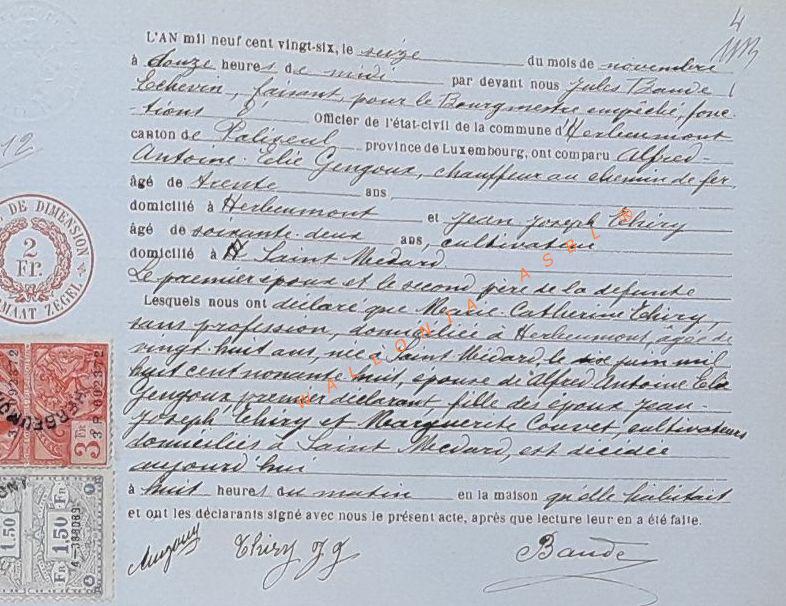 4
L'AN mil neuf cent vingt-six, le seize du mois de novembre
à douze heures de midi par devant nous Jules Baude
Echevin, faisant, pour le Bourgmestre empêché, fonc-
tions d' Officier de l'état-civil de la commune d'Herbeumont
canton de Paliseul province de Luxembourg, ont comparu Alfred-
Antoine-Elie Gengoux, chauffeur au chemin de fer,
âgé de trente ans,
domicilié à Herbeumont et Jean Joseph Thiry
âgé de soixante-deux ans, cultivateur
domicilié à Saint Médard.
Le premier époux et le second père de la défunte
Lesquels nous ont déclaré que Marie Catherine Thiry,
sans profession, domiciliée à Herbeumont, âgée de
vingt-huit ans, née à Saint Médard, le six juin mil
huit cent nonante huit, épouse de Alfred Antoine Elie
Gengoux, premier déclarant, fille des époux Jean-
Joseph Thiry et Marguerite Couvet, cultivateurs
domiciliés à Saint Médard, est décédée
aujourd'hui
à huit heures du matin en la maison qu'elle habitait
et ont les déclarants signé avec nous le présent acte, après que lecture leur en a été faite.
Thiry J J Baude
12
DE DIMENSION
2
Fr.
FORMAAT ZEGEL
3 Fr
1.50 Fr 1.50
WALLONFA ASBL